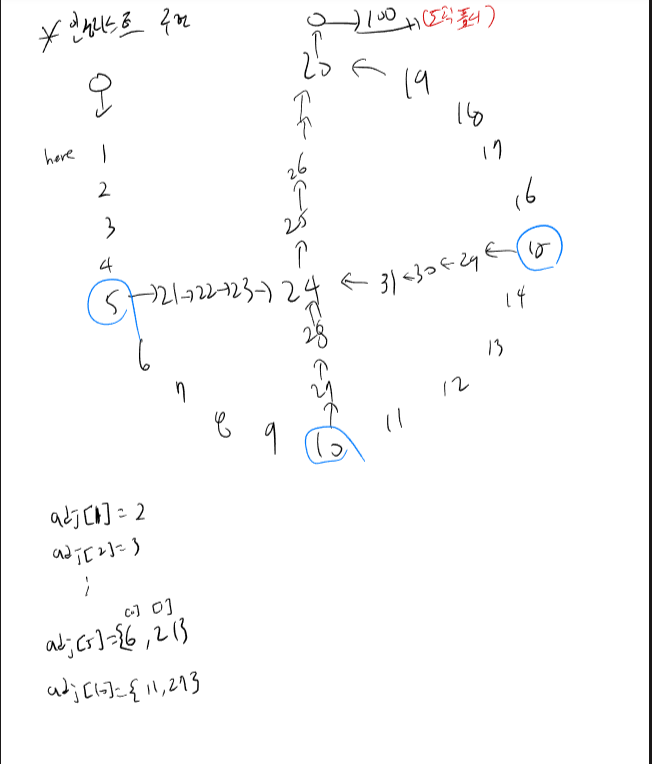 * 인접리스트 구현
0 → 100 → (도착 플래그)
20 ← 19
0
18
17
here 1
26
2
16
3
25
4
5 → 21 → 22 → 23 → 24 ← 31 ← 30 ← 29 ← 15
14
28
6
13
7
27
12
8
9
10
11
adj[1] = 2
adj[2] = 3
;
[0] [1]
adj[5] = {6, 21}
adj[10] = {11, 27}